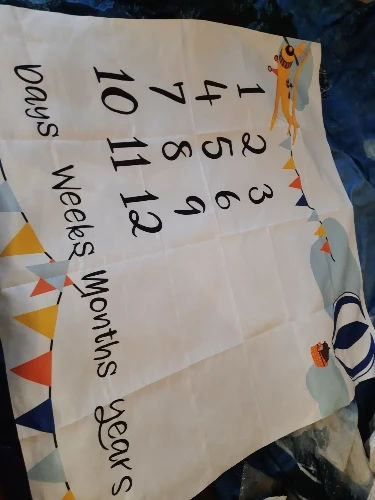 1 2 3
4 5 6
7 8 9
10 11 12
Days Weeks Months Years